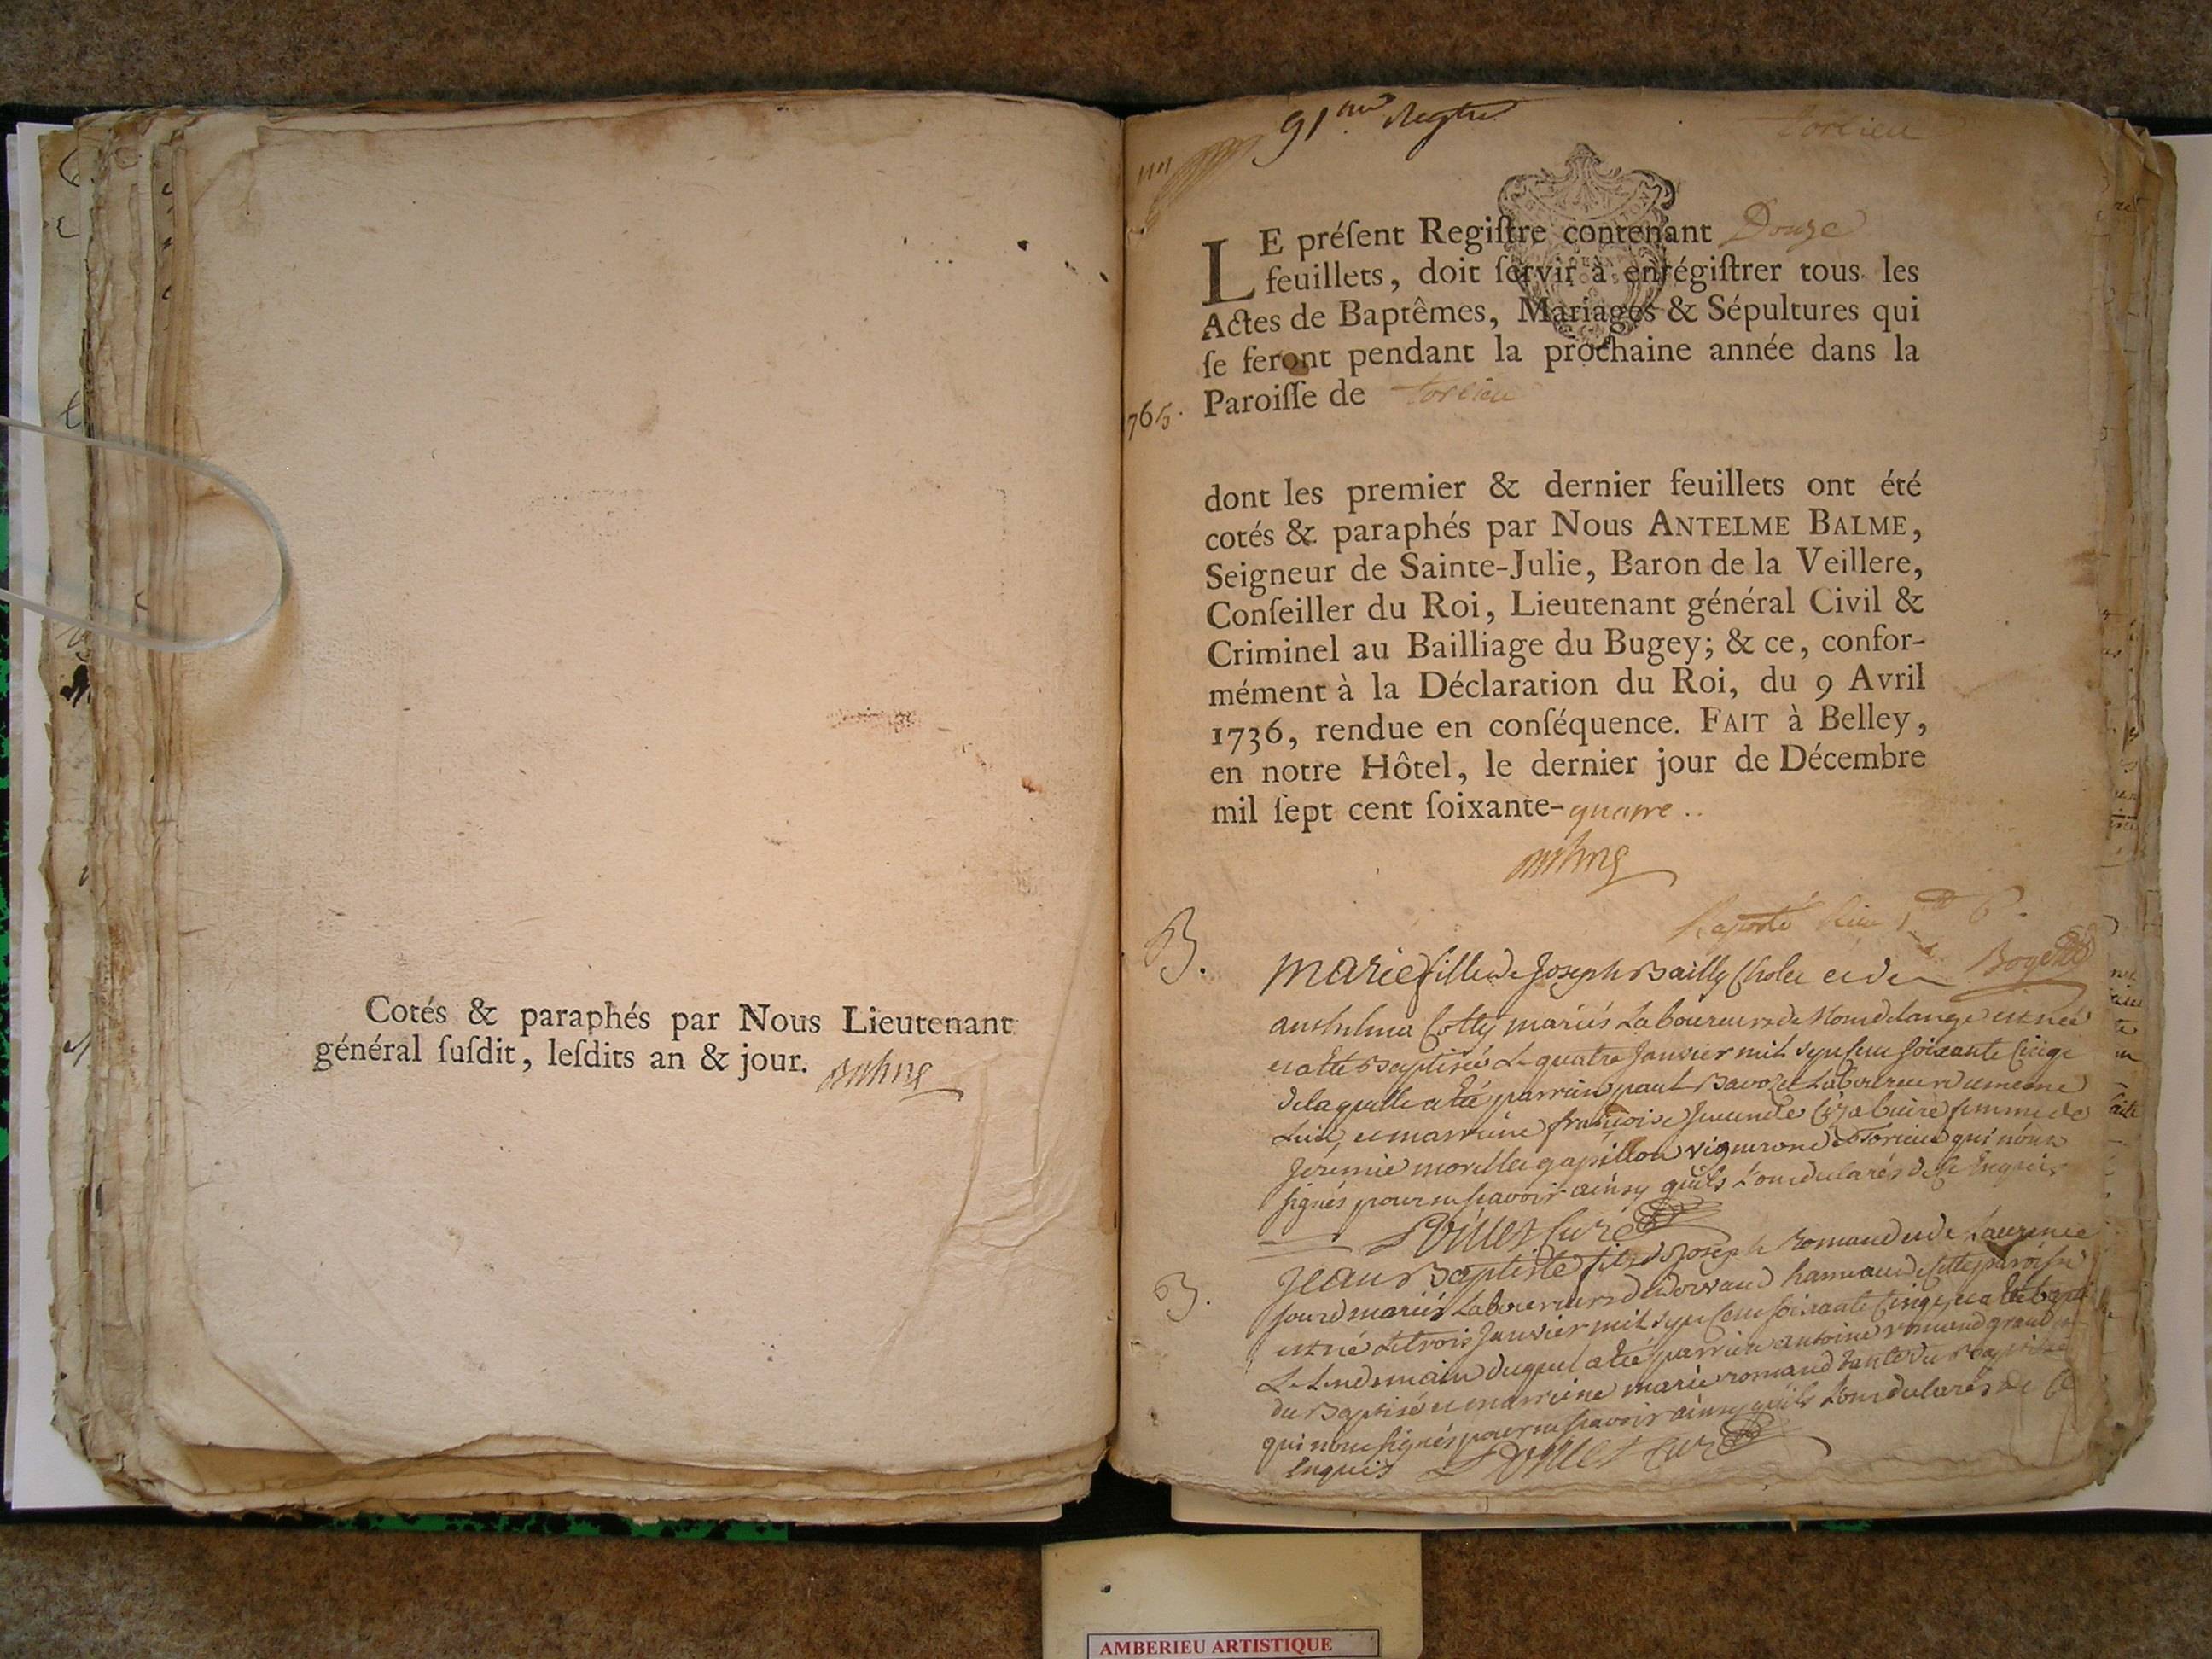 Cotés & paraphés par Nous Lieutenant
général ſuſdit, leſdits an & jour.
91me Regtre
torcieu
LE préſent Regiſtre contenant Douze
feuillets, doit ſervir à enrégiſtrer tous les
Actes de Baptêmes, Mariages & Sépultures qui
ſe feront pendant la prochaine année dans la
Paroiſſe de torcieu
765.
dont les premier & dernier feuillets ont été
cotés & paraphés par Nous ANTELME BALME,
Seigneur de Sainte-Julie, Baron de la Veillere,
Conſeiller du Roi, Lieutenant général Civil &
Criminel au Bailliage du Bugey; & ce, confor-
mément à la Déclaration du Roi, du 9 Avril
1736, rendue en conſéquence. FAIT à Belley,
en notre Hôtel, le dernier jour de Décembre
mil ſept cent ſoixante-quatre ..
B.
marie fille de Joseph Bailly Cholet et de
anthelma Cotty mariés Laboureurs de Montdelange est née
et a été Baptisée Le quatre Janvier mil sept cent soixante Cinq
de laquelle a été parrain paul Bavozet Laboureur du meme
Lieu, et marraine françoise femme de
Jérémie morellet gapillon vigneron de Torcieu qui n'ont
signés pour ne sçavoir ainsy qu'ils L'ont declarés de ce Enquis
Curé
B.
Jean Baptiste fils de Joseph Romand et de Laurence
Jourd mariés Laboureurs de Dorvand hameau de cette paroisse
est né Le trois Janvier mil sept cent soixante Cinq et a été Baptisé
Le Lendemain duquel a été parrain antoine romand grand
du Baptisé et marraine marie romand tante du Baptisé
qui n'ont signés pour ne sçavoir ainsy qu'ils L'ont declarés de Ce
Enquis Curé
AMBERIEU ARTISTIQUE